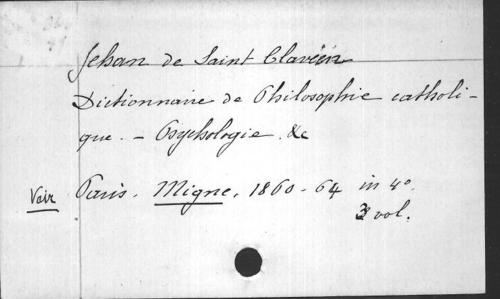 Jehan de Saint Clavien
Dictionnaire de Philosophie catholi-
que. - Psychologie &c
Voir Paris. Migne. 1860-64 in 4o.
3 vol.